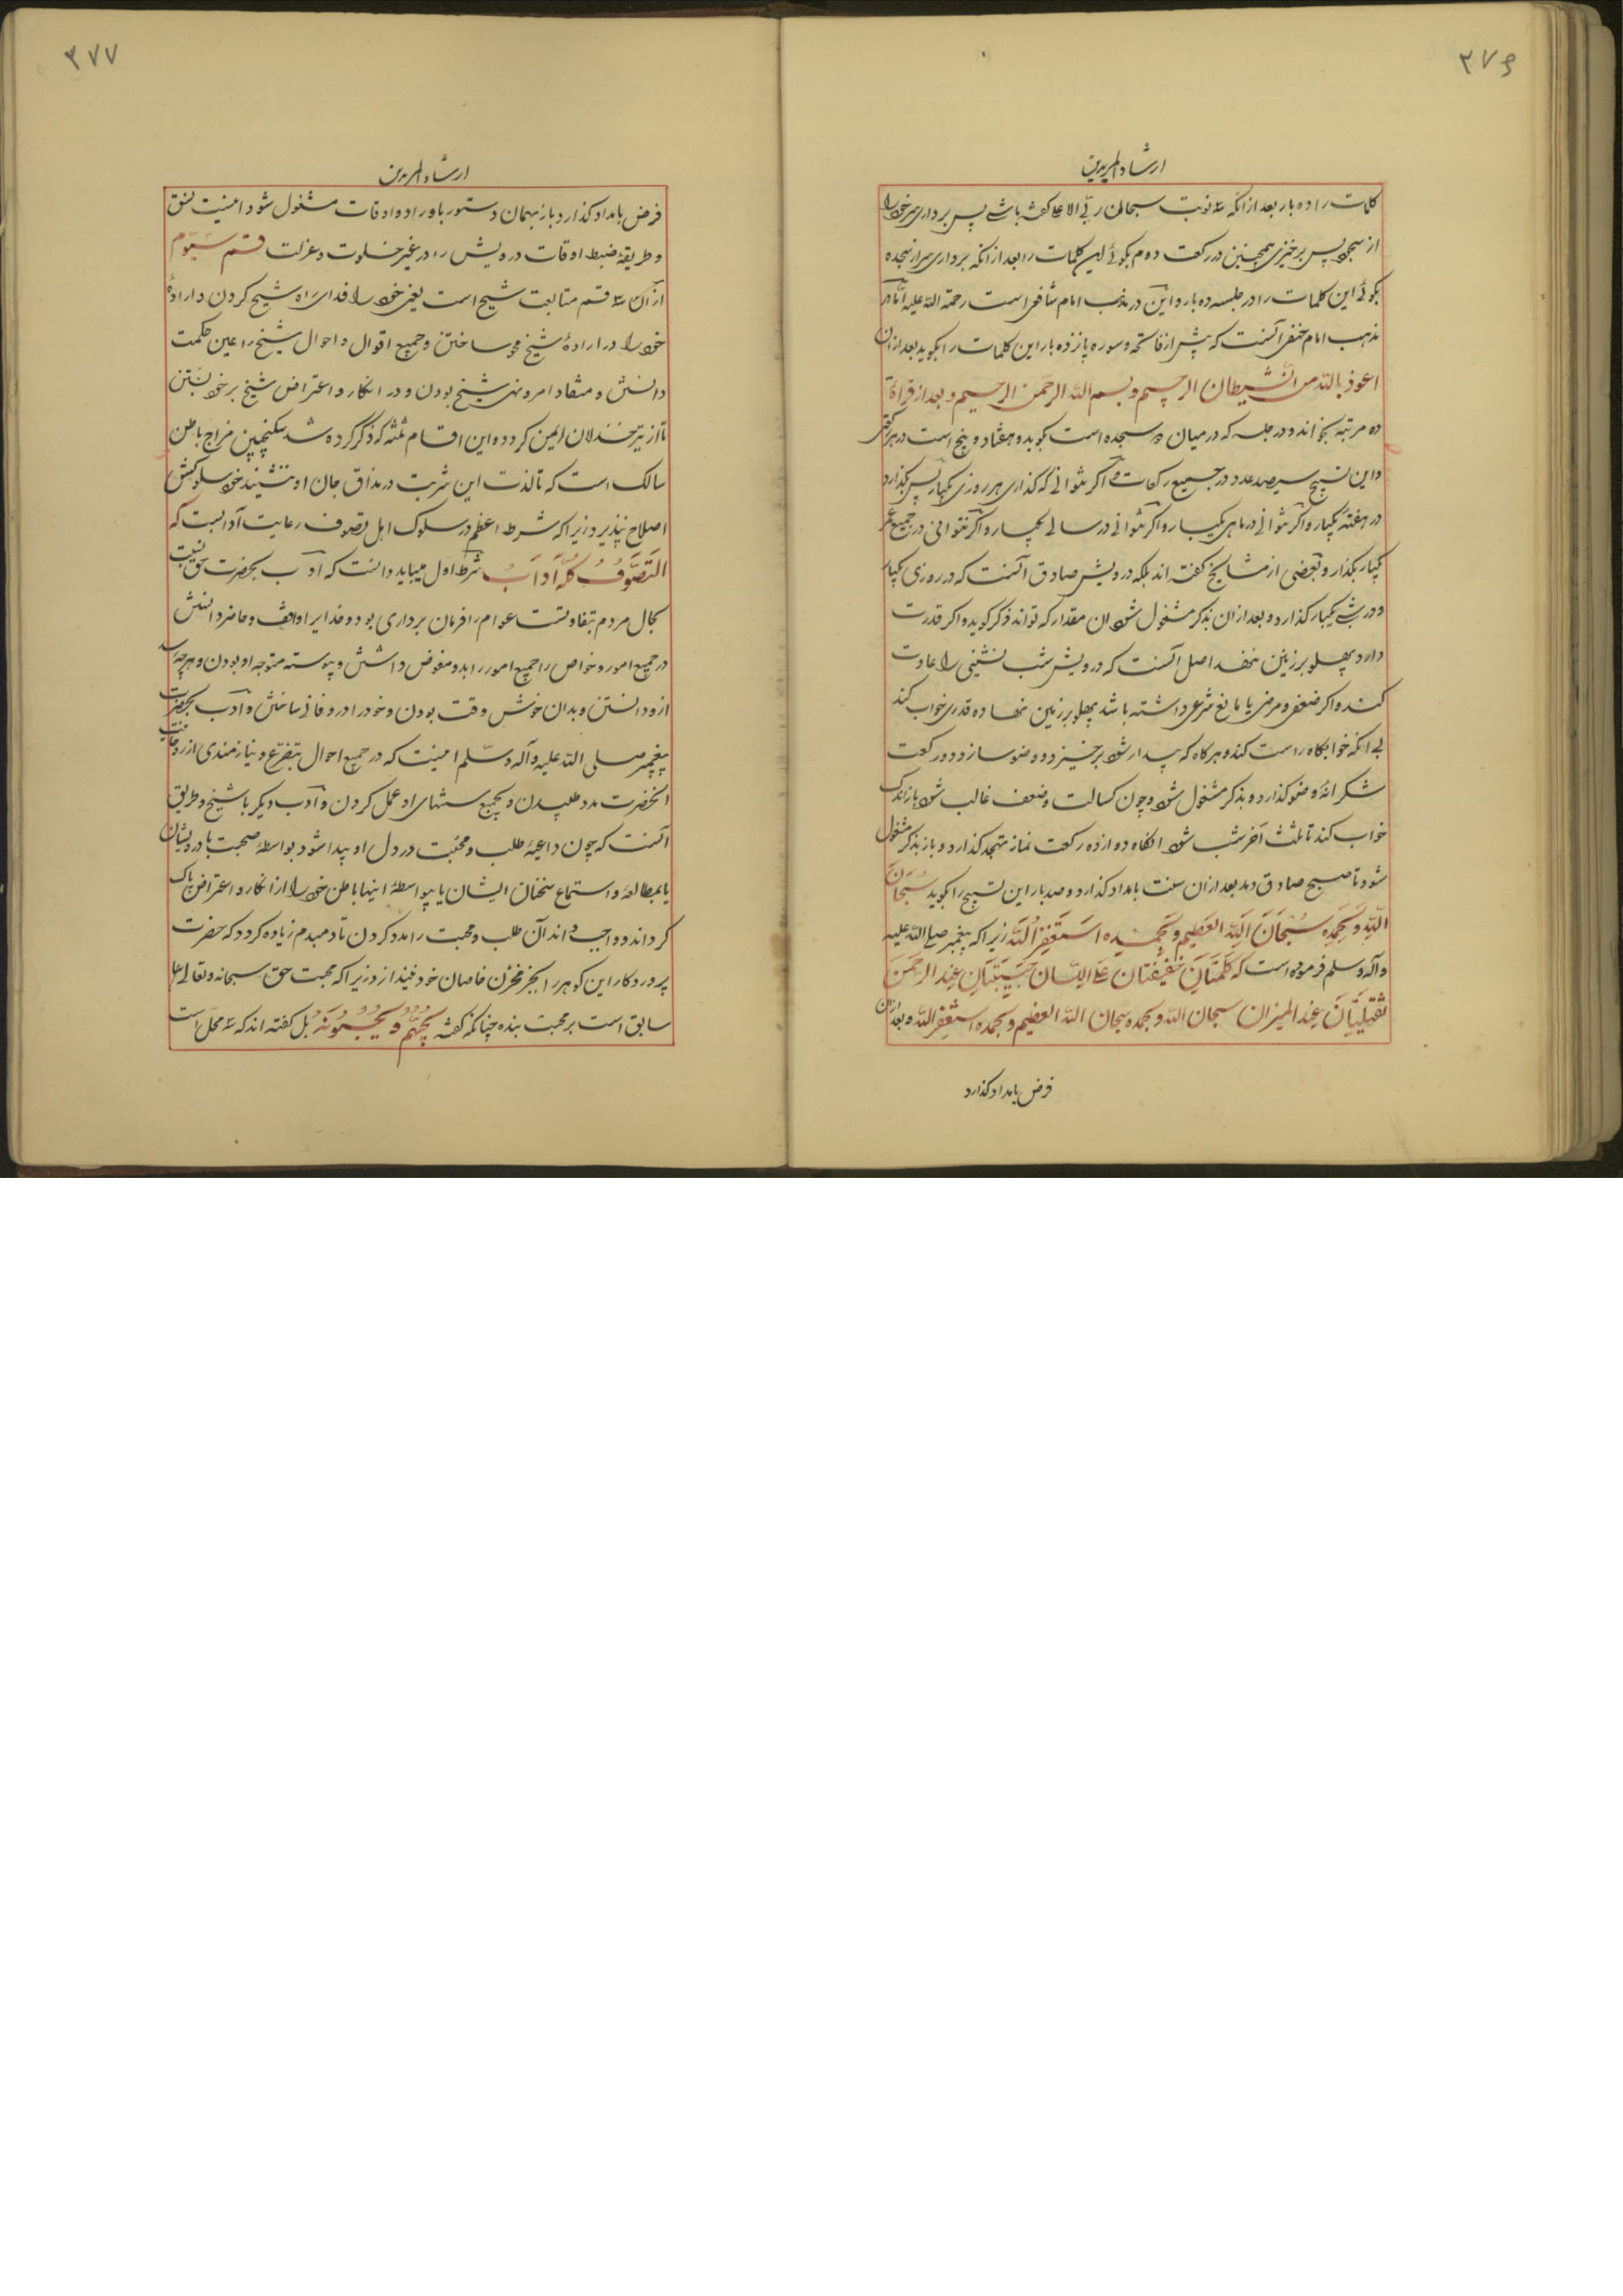 ۳۷۶
ارشاد المریدین
کلمات را ده بار بعد از انکه سه نوبت سبحان ربی الاعلی کفته باشی پس برداری سر خود را
از سجود پس برخیزی همچنین در رکعت دوم بکوئی این کلمات را بعد از انکه برداری سر از سجده
بکوئی این کلمات را در جلسه ده بار و این در مذهب امام شافعی است رحمة الله علیه اما در
مذهب امام حنفی آنست که پیش از فاتحه و سوره پانزده بار این کلمات را بکوید بعد ازان
اعوذ بالله من الشیطان الرجیم و بسم الله الرحمن الرحیم و بعد از قراة
ده مرتبه بخواند و در جلسه که در میان دو سجده است بکوید و هفتاد و پنج است در هر رکعتی
و این تسبیح سیصد عدد در جمیع رکعات و اکر توانی که کذاری هر روزی یکبار پس بکذار و
در هفتهٔ یکبار و اکر نتوانی در ماهی یکبار و اکر نتوانی در سالی یکبار و اکر نتوانی در جمیع عمر
یکبار بکذار و بعضی از مشایخ کفته اند بلکه درویش صادق آنست که در روزی یکبار
و در شبی یکبار کذارد و بعد ازان بذکر مشغول شود ان مقدار که تواند ذکر کوید و اکر قدرت
دارد پهلو بر زمین ننهد اصل آنست که درویش شب نشینی را عادت
کند و اکر ضعفی و مرضی یا مانع شرعی داشته باشد پهلو بر زمین نهاده قدری خواب کند
بی انکه خوابکاه راست کند و هرکاه که بیدار شود برخیزد و وضو سازد و دو رکعت
شکرانهٔ وضو کذارد و بذکر مشغول شود و چون کسالت و ضعف غالب شود باز اندک
خواب کند تا ثلث آخر شب شود انکاه دوازده رکعت نماز تهجد کذارد و باز بذکر مشغول
شود تا صبح صادق دمد بعد ازان سنت بامداد کذارد و صد بار این تسبیح را بکوید سبحان
الله و بحمده سبحان الله العظیم و بحمده استغفر الله زیرا که پیغمبر صلی الله علیه
و آله و سلم فرموده است که کلمتان خفیفتان علی اللسان حبیبتان عند الرحمن
ثقیلتان عند المیزان سبحان الله و بحمده سبحان الله العظیم و بحمده استغفر الله و بعد ازان
فرض بامداد کذارد
۳۷۷
ارشاد المریدین
فرض بامداد کذارد و باز بهمان دستور باوراد و اوقات مشغول شود اینست نسق
و طریقهٔ ضبط اوقات درویش را در غیر خلوت و عزلت قسم سیوم
از آن سه قسم متابعت شیخ است یعنی خود را فدای راه شیخ کردن و ارادهٔ
خود را در ارادهٔ شیخ محو ساختن و جمیع اقوال و احوال شیخ را عین حکمت
دانستن و منقاد امر و نهی شیخ بودن و در انکار و اعتراض شیخ بر خود بستن
تا از تیر خذلان ایمن کردد و این اقسام ثلثه که ذکر کرده شد سکنجبین مزاج باطن
سالک است که تا لذت این شربت در مذاق جان او ننشیند خود سلوکش
اصلاح نپذیرد زیرا که شرط اعظم در سلوک اهل تصوف رعایت آدابست که
التصوف کله آداب شرط اول میباید دانست که ادب بحضرت حق نسبت
بحال مردم متفاوتست عوام را فرمان برداری بود و خدایرا واقف و حاضر دانستن
در جمیع امور و خواص را جمیع امور را بدو مفوض داشتن و پیوسته متوجه او بودن و هر چه رسد
ازو دانستن و بدان خوش وقت بودن و خود را درو فانی ساختن و ادب بحضرت
پیغمبر صلی الله علیه و آله و سلم اینست که در جمیع احوال بتضرع و نیازمندی از روحانیت
انحضرت مدد طلبیدن و بجمیع سنتهای او عمل کردن و ادب دیکر با شیخ و طریق
آنست که چون داعیهٔ طلب و محبت در دل او پیدا شود بواسطهٔ صحبت با درویشان
یا بمطالعه و استماع سخنان ایشان یا بیواسطهٔ اینها باطن خود را از انکار و اعتراض پاک
کرداند و واجب داند آن طلب و محبت را مدد کردن تا دمبدم زیاده کردد که حضرت
پروردکار این کوهر را بجز مخزن خاصان خود نیندازد زیرا که محبت حق سبحانه و تعالی
سابق است بر محبت بنده چنانکه کفته یحبهم و یحبونه بل کفته اند که سه محل است